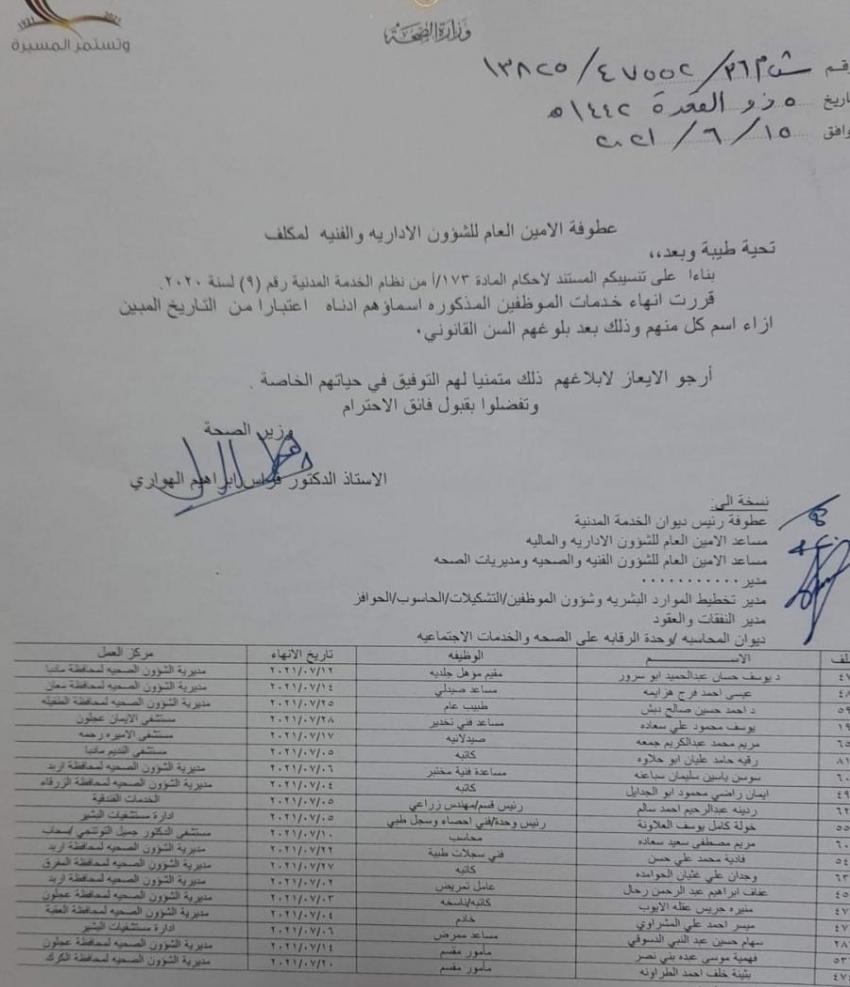 وتستمر المسيرة
وزارة الصحة
رقم ش م/٣٦/٤٧٥٥٢/١٣٨٢٥
تاريخ ٥ ذو القعدة ١٤٤٢ه
وافق ١٥/٦/٢٠٢١
عطوفة الامين العام للشؤون الاداريه والفنيه لمكلف
تحية طيبة وبعد،،
بناءا على تنسيبكم المستند لاحكام المادة ١٧٣/أ من نظام الخدمة المدنية رقم (٩) لسنة ٢٠٢٠.
قررت انهاء خدمات الموظفين المذكوره اسماؤهم ادناه اعتبارا من التاريخ المبين
ازاء اسم كل منهم وذلك بعد بلوغهم السن القانوني.
أرجو الايعاز لابلاغهم ذلك متمنيا لهم التوفيق في حياتهم الخاصة .
وتفضلوا بقبول فائق الاحترام
وزير الصحة
الاستاذ الدكتور فراس ابراهيم الهواري
نسخة الى:
عطوفة رئيس ديوان الخدمة المدنية
مساعد الامين العام للشؤون الاداريه والماليه
مساعد الامين العام للشؤون الفنيه والصحيه ومديريات الصحه
مدير ...........
مدير تخطيط الموارد البشريه وشؤون الموظفين/التشكيلات/الحاسوب/الحوافز
مدير النفقات والعقود
ديوان المحاسبه /وحدة الرقابه على الصحه والخدمات الاجتماعيه
ملف الاســـــــم الوظيفه تاريخ الانهاء مركز العمل
د يوسف حسان عبدالحميد ابو سرور مقيم مؤهل جلديه ٢٠٢١/٠٧/١٢ مديرية الشؤون الصحيه لمحافظة مادبا
عيسى احمد فرج هزايمه مساعد صيدلي ٢٠٢١/٠٧/١٤ مديرية الشؤون الصحيه لمحافظة معان
د احمد حسين صالح دبش طبيب عام ٢٠٢١/٠٧/٢٥ مديرية الشؤون الصحيه لمحافظة الطفيله
يوسف محمود علي سعاده مساعد فني تخدير ٢٠٢١/٠٧/٢٨ مستشفى الايمان عجلون
مريم محمد عبدالكريم جمعه صيدلانيه ٢٠٢١/٠٧/١٧ مستشفى الاميره رحمه
رقيه حامد عليان ابو حلاوه كاتبه ٢٠٢١/٠٧/٠٥ مستشفى النديم مادبا
سوسن ياسين سليمان سباعنه مساعدة فنية مختبر ٢٠٢١/٠٧/٠٦ مديرية الشؤون الصحيه لمحافظة اربد
ايمان راضي محمود ابو الجدايل كاتبه ٢٠٢١/٠٧/٠٤ مديرية الشؤون الصحيه لمحافظة الزرقاء
ردينه عبدالرحيم احمد سالم رئيس قسم/مهندس زراعي ٢٠٢١/٠٧/٠٥ الخدمات الفندقية
خولة كامل يوسف العلاونة رئيس وحدة/فني احصاء وسجل طبي ٢٠٢١/٠٧/٠٥ ادارة مستشفيات البشير
مريم مصطفى سعيد سعاده محاسب ٢٠٢١/٠٧/١٠ مستشفى الدكتور جميل التوتنجي/سحاب
فادية محمد علي حسن فني سجلات طبية ٢٠٢١/٠٧/٢٢ مديرية الشؤون الصحيه لمحافظة اربد
وجدان علي عليان الحوامده كاتبه ٢٠٢١/٠٧/٢٧ مديرية الشؤون الصحيه لمحافظة المفرق
عفاف ابراهيم عبد الرحمن رحال عامل تمريض ٢٠٢١/٠٧/٠٢ مديرية الشؤون الصحيه لمحافظة اربد
منيره جريس عطه الايوب كاتبه/ناسخه ٢٠٢١/٠٧/٠٣ مديرية الشؤون الصحيه لمحافظة عجلون
ميسر احمد علي المشراوي خادم ٢٠٢١/٠٧/٠٤ مديرية الشؤون الصحيه لمحافظة العقبة
سهام حسين عبد النبي الدسوقي مساعد ممرض ٢٠٢١/٠٧/٠٦ ادارة مستشفيات البشير
فهمية موسى عبده بني نصر مأمور مقسم ٢٠٢١/٠٧/١٤ مديرية الشؤون الصحيه لمحافظة عجلون
بثينة خلف احمد الطراونه مأمور مقسم ٢٠٢١/٠٧/٢٠ مديرية الشؤون الصحيه لمحافظة الكرك